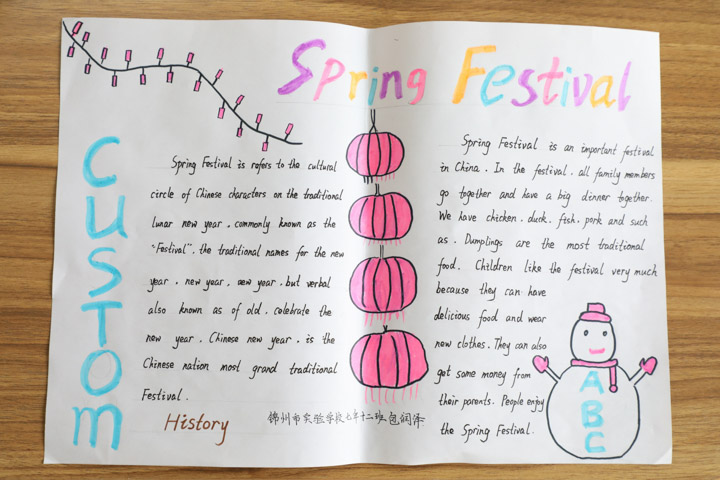 Spring Festival
CUSTOM
Spring Festival is refers to the cultural
circle of Chinese characters on the traditional
lunar new year, commonly known as the
"Festival", the traditional names for the new
year, new year, new year, but verbal
also known as of old, celebrate the
new year, Chinese new year, is the
Chinese nation most grand traditional
Festival.
History
锦州市实验学校七年十二班包润泽
Spring Festival is an important festival
in China. In the festival, all family members
go together and have a big dinner together.
We have chicken, duck, fish, pork and such
as. Dumplings are the most traditional
food. Children like the festival very much
because they can have
delicious food and wear
new clothes. They can also
get some money from
their parents. People enjoy
the Spring Festival.
A
B
C